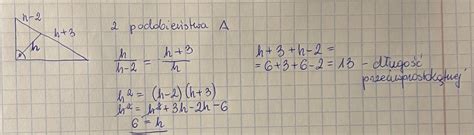 h-2
h+3
h
z podobieństwa Δ
h/h-2 = h+3/h
h² = (h-2)(h+3)
h² = h² + 3h - 2h - 6
6 = h
h+3+h-2 =
= 6+3+6-2 = 13 - długość
przeciwprostokątnej